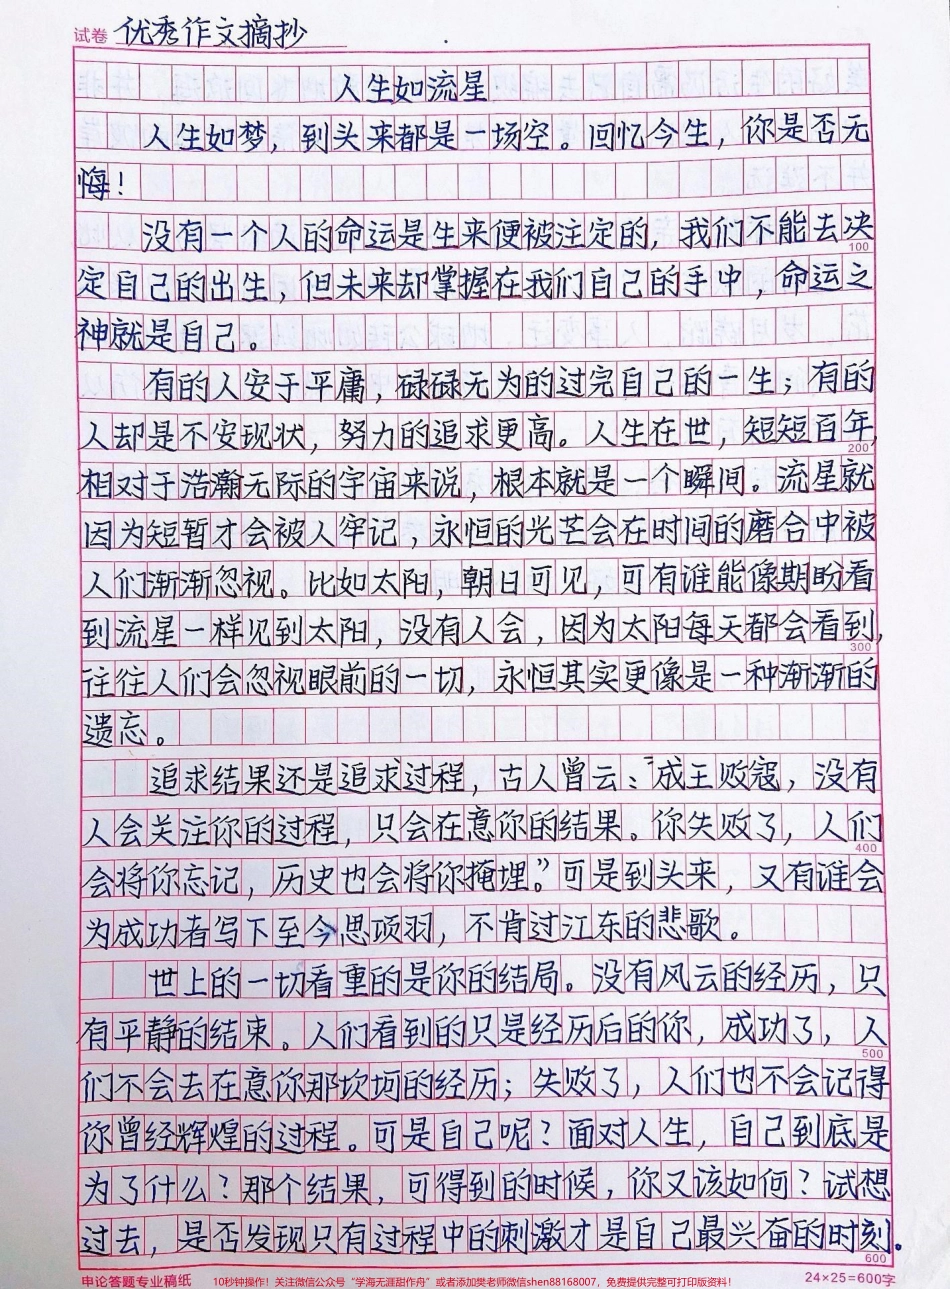 试卷 优秀作文摘抄
人生如流星
人生如梦，到头来都是一场空。回忆今生，你是否无
悔！
没有一个人的命运是生来便被注定的，我们不能去决
100
定自己的出生，但未来却掌握在我们自己的手中，命运之
神就是自己。
有的人安于平庸，碌碌无为的过完自己的一生，有的
人却是不安现状，努力的追求更高。人生在世，短短百年，
200
相对于浩瀚无际的宇宙来说，根本就是一个瞬间。流星就
因为短暂才会被人牢记，永恒的光芒会在时间的磨合中被
人们渐渐忽视。比如太阳，朝日可见，可有谁能像期盼看
到流星一样见到太阳，没有人会，因为太阳每天都会看到，
300
往往人们会忽视眼前的一切，永恒其实更像是一种渐渐的
遗忘。
追求结果还是追求过程，古人曾云：“成王败寇，没有
人会关注你的过程，只会在意你的结果。你失败了，人们
400
会将你忘记，历史也会将你掩埋。”可是到头来，又有谁会
为成功者写下至今思项羽，不肯过江东的悲歌。
世上的一切看重的是你的结局。没有风云的经历，只
有平静的结束。人们看到的只是经历后的你，成功了，人
500
们不会去在意你那坎坷的经历；失败了，人们也不会记得
你曾经辉煌的过程。可是自己呢？面对人生，自己到底是
为了什么？那个结果，可得到的时候，你又该如何？试想
过去，是否发现只有过程中的刺激才是自己最兴奋的时刻。
600
申论答题专业稿纸 10秒钟操作！关注微信公众号“学海无涯甜作舟”或者添加樊老师微信shen88168007，免费提供完整可打印版资料！ 24×25=600字